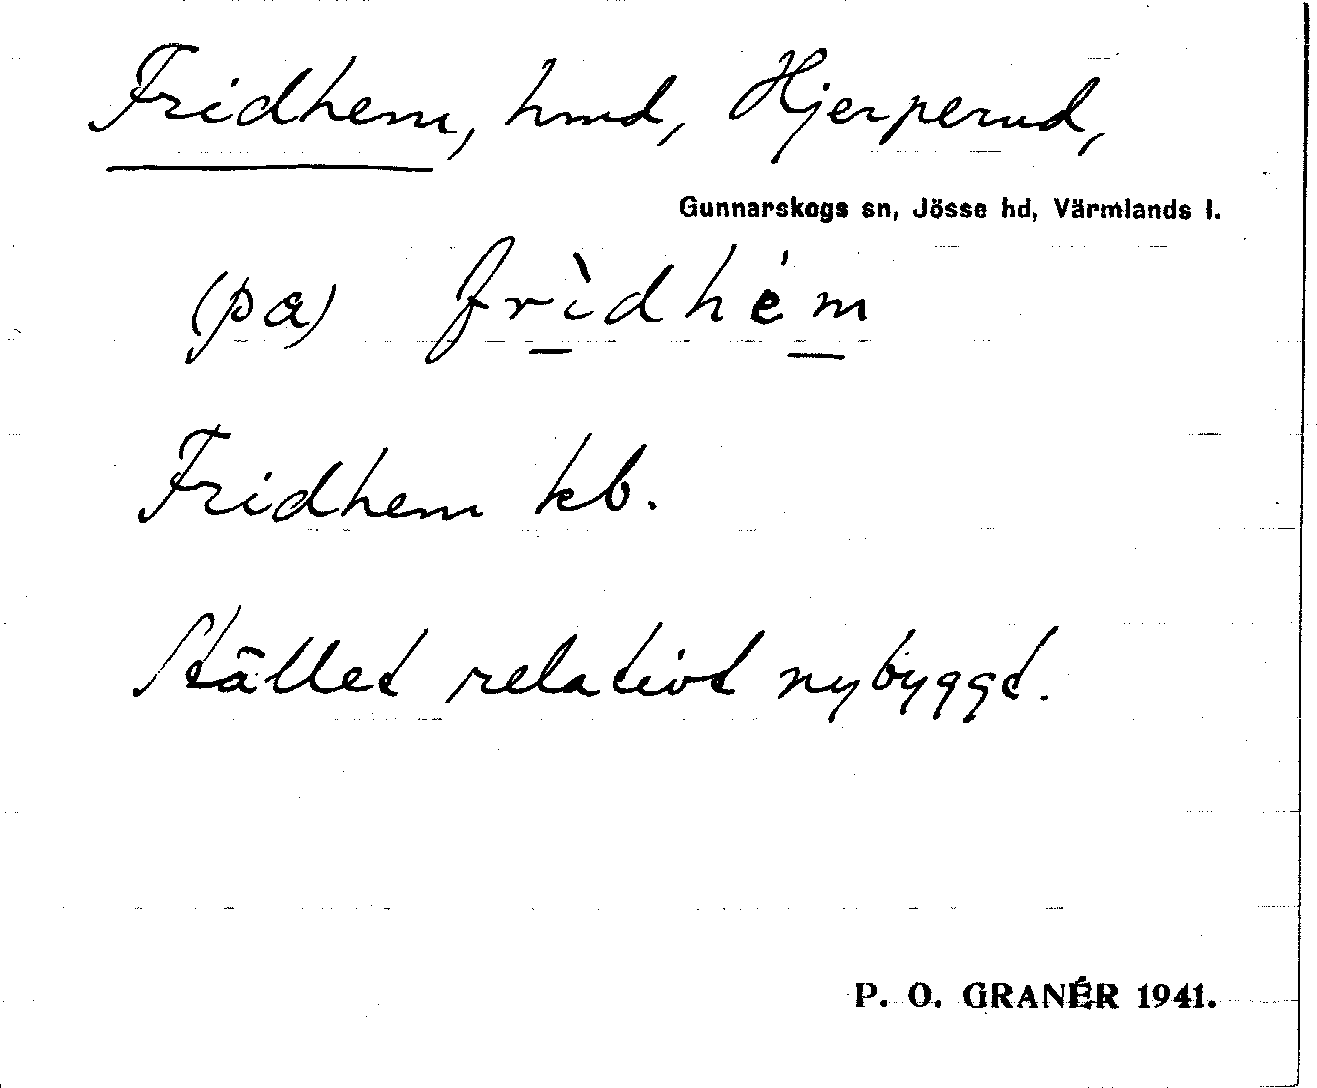 Fridhem, hmd, Hjerperud,
Gunnarskogs sn, Jösse hd, Värmlands l.
(pa) frìdhém
Fridhem kb.
Stället relativt nybyggt.
P. O. GRANÉR 1941.